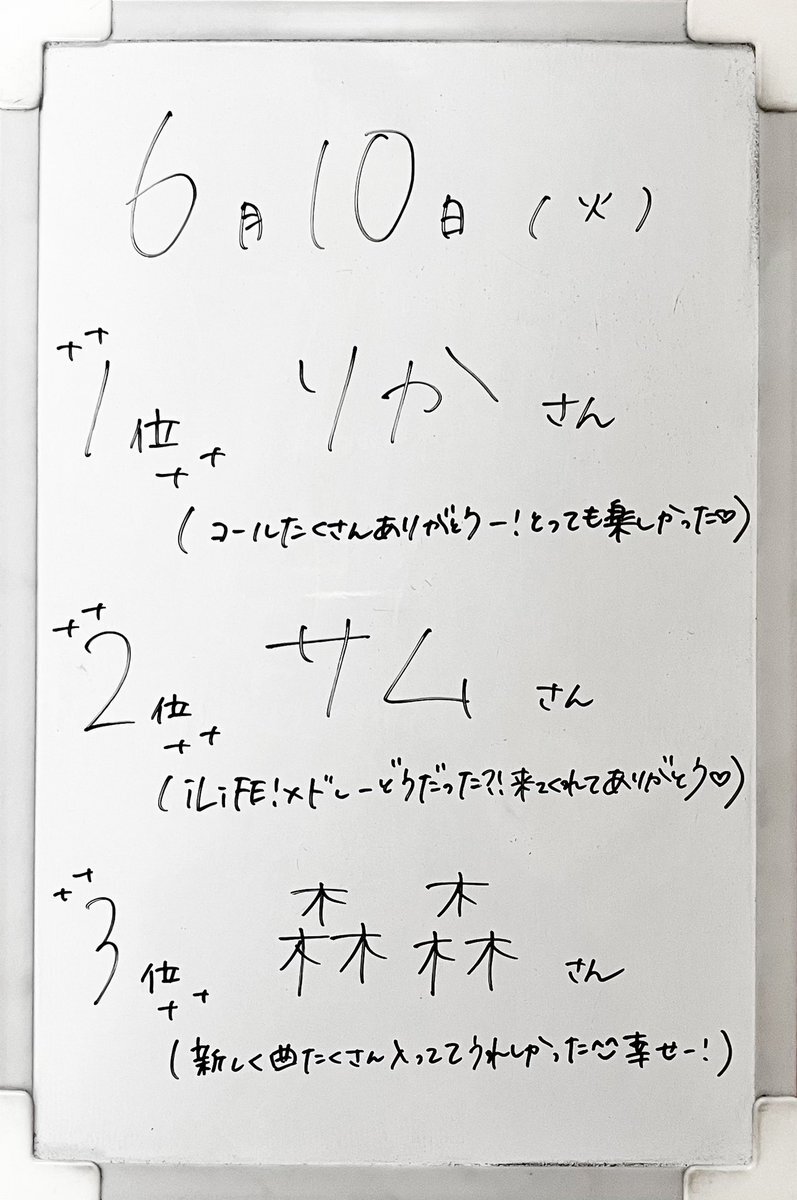 6月10日(火)
1位 りかさん
(コールたくさんありがとうー!とっても楽しかった♡)
2位 サムさん
(iLiFE!メドレーどうだった?!来てくれてありがとう♡)
3位 森森さん
(新しく曲たくさん入っててうれしかった 幸せー!)